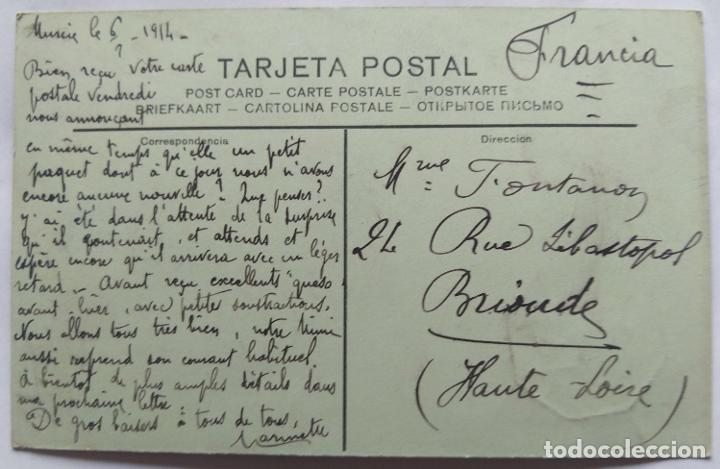 Murcie le 6 - ? - 1914 -
Bien reçu votre carte
postale vendredi
nous annonçant
Francia
TARJETA POSTAL
POST CARD — CARTE POSTALE — POSTKARTE
BRIEFKAART — CARTOLINA POSTALE — ОТКРЫТОЕ ПИСЬМО
Correspondencia
Dirección
en même temps qu'elle un petit
paquet dont à ce jour nous n'avons
encore aucune nouvelle? Que penser?
J'ai été dans l'attente de la surprise
qu'il contenait, et attends et
espère encore qu'il arrivera avec un léger
retard — Avant reçu excellents "queso"
avant hier, avec petites soustractions.
Nous allons tous très bien, notre Mimi
aussi reprend son courant habituel
à bientôt de plus amples détails dans
ma prochaine lettre.
De gros baisers à tous de tous,
Mme Fontanon
24 Rue Sébastopol
Brioude
(Haute-Loire)
todocoleccion